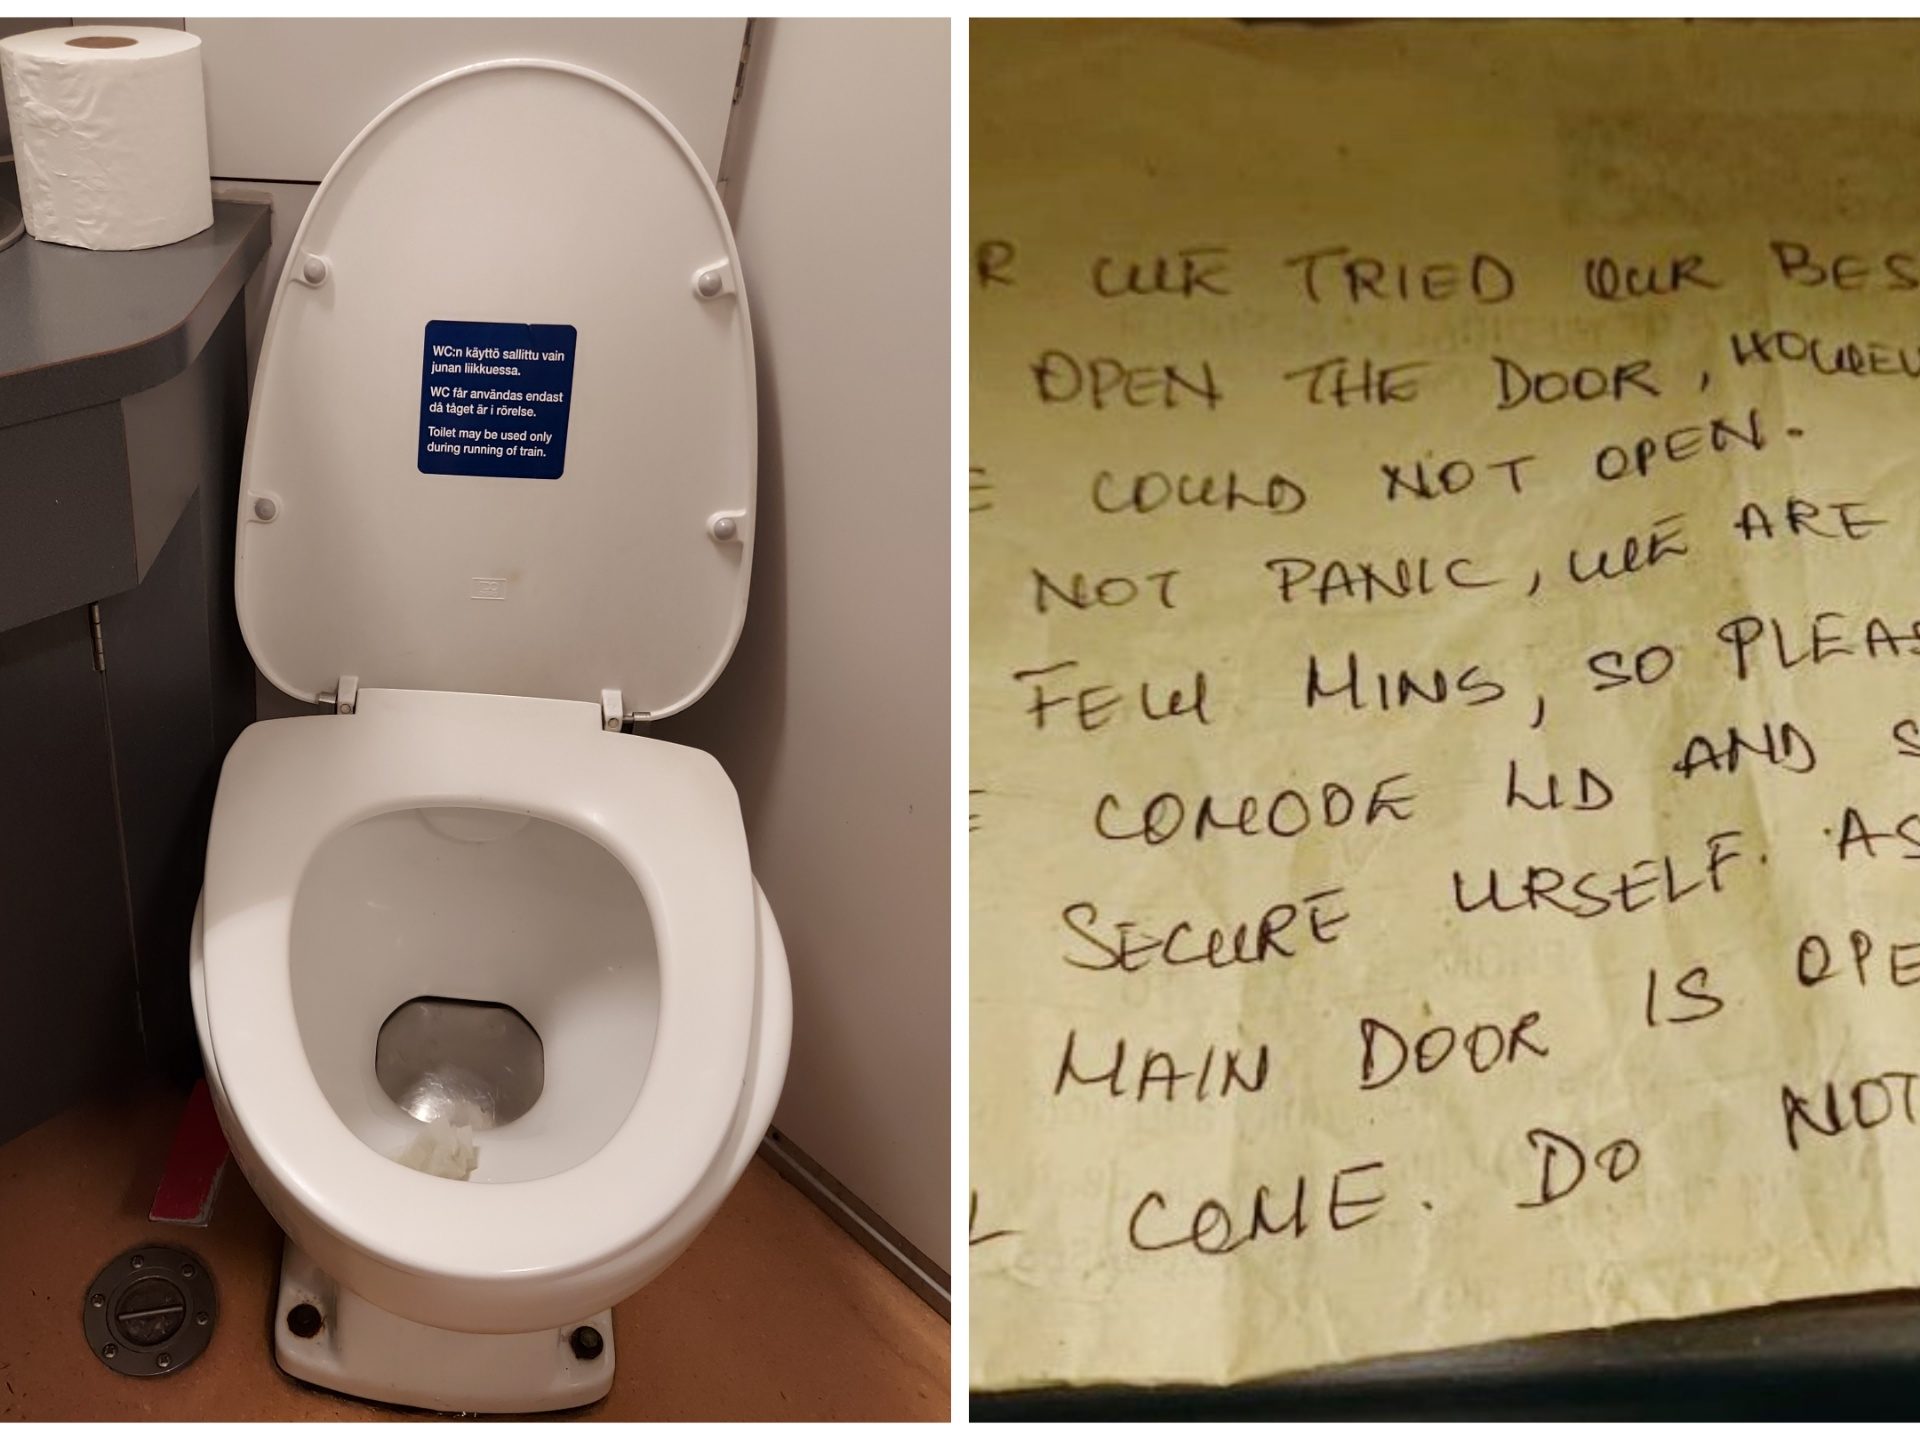 WC:n käyttö sallittu vain
junan liikkuessa.
WC får användas endast
då tåget är i rörelse.
Toilet may be used only
during running of train.
R WE TRIED OUR BES
OPEN THE DOOR, HOWEV
E COULD NOT OPEN.
NOT PANIC, WE ARE
FEW MINS, SO PLEAS
E COMODE LID AND S
SECURE URSELF. AS
MAIN DOOR IS OPE
L COME. DO NOT